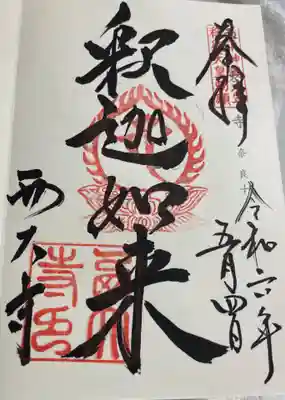 奉拝
令和六年
五月四日
釈迦如来
西大寺